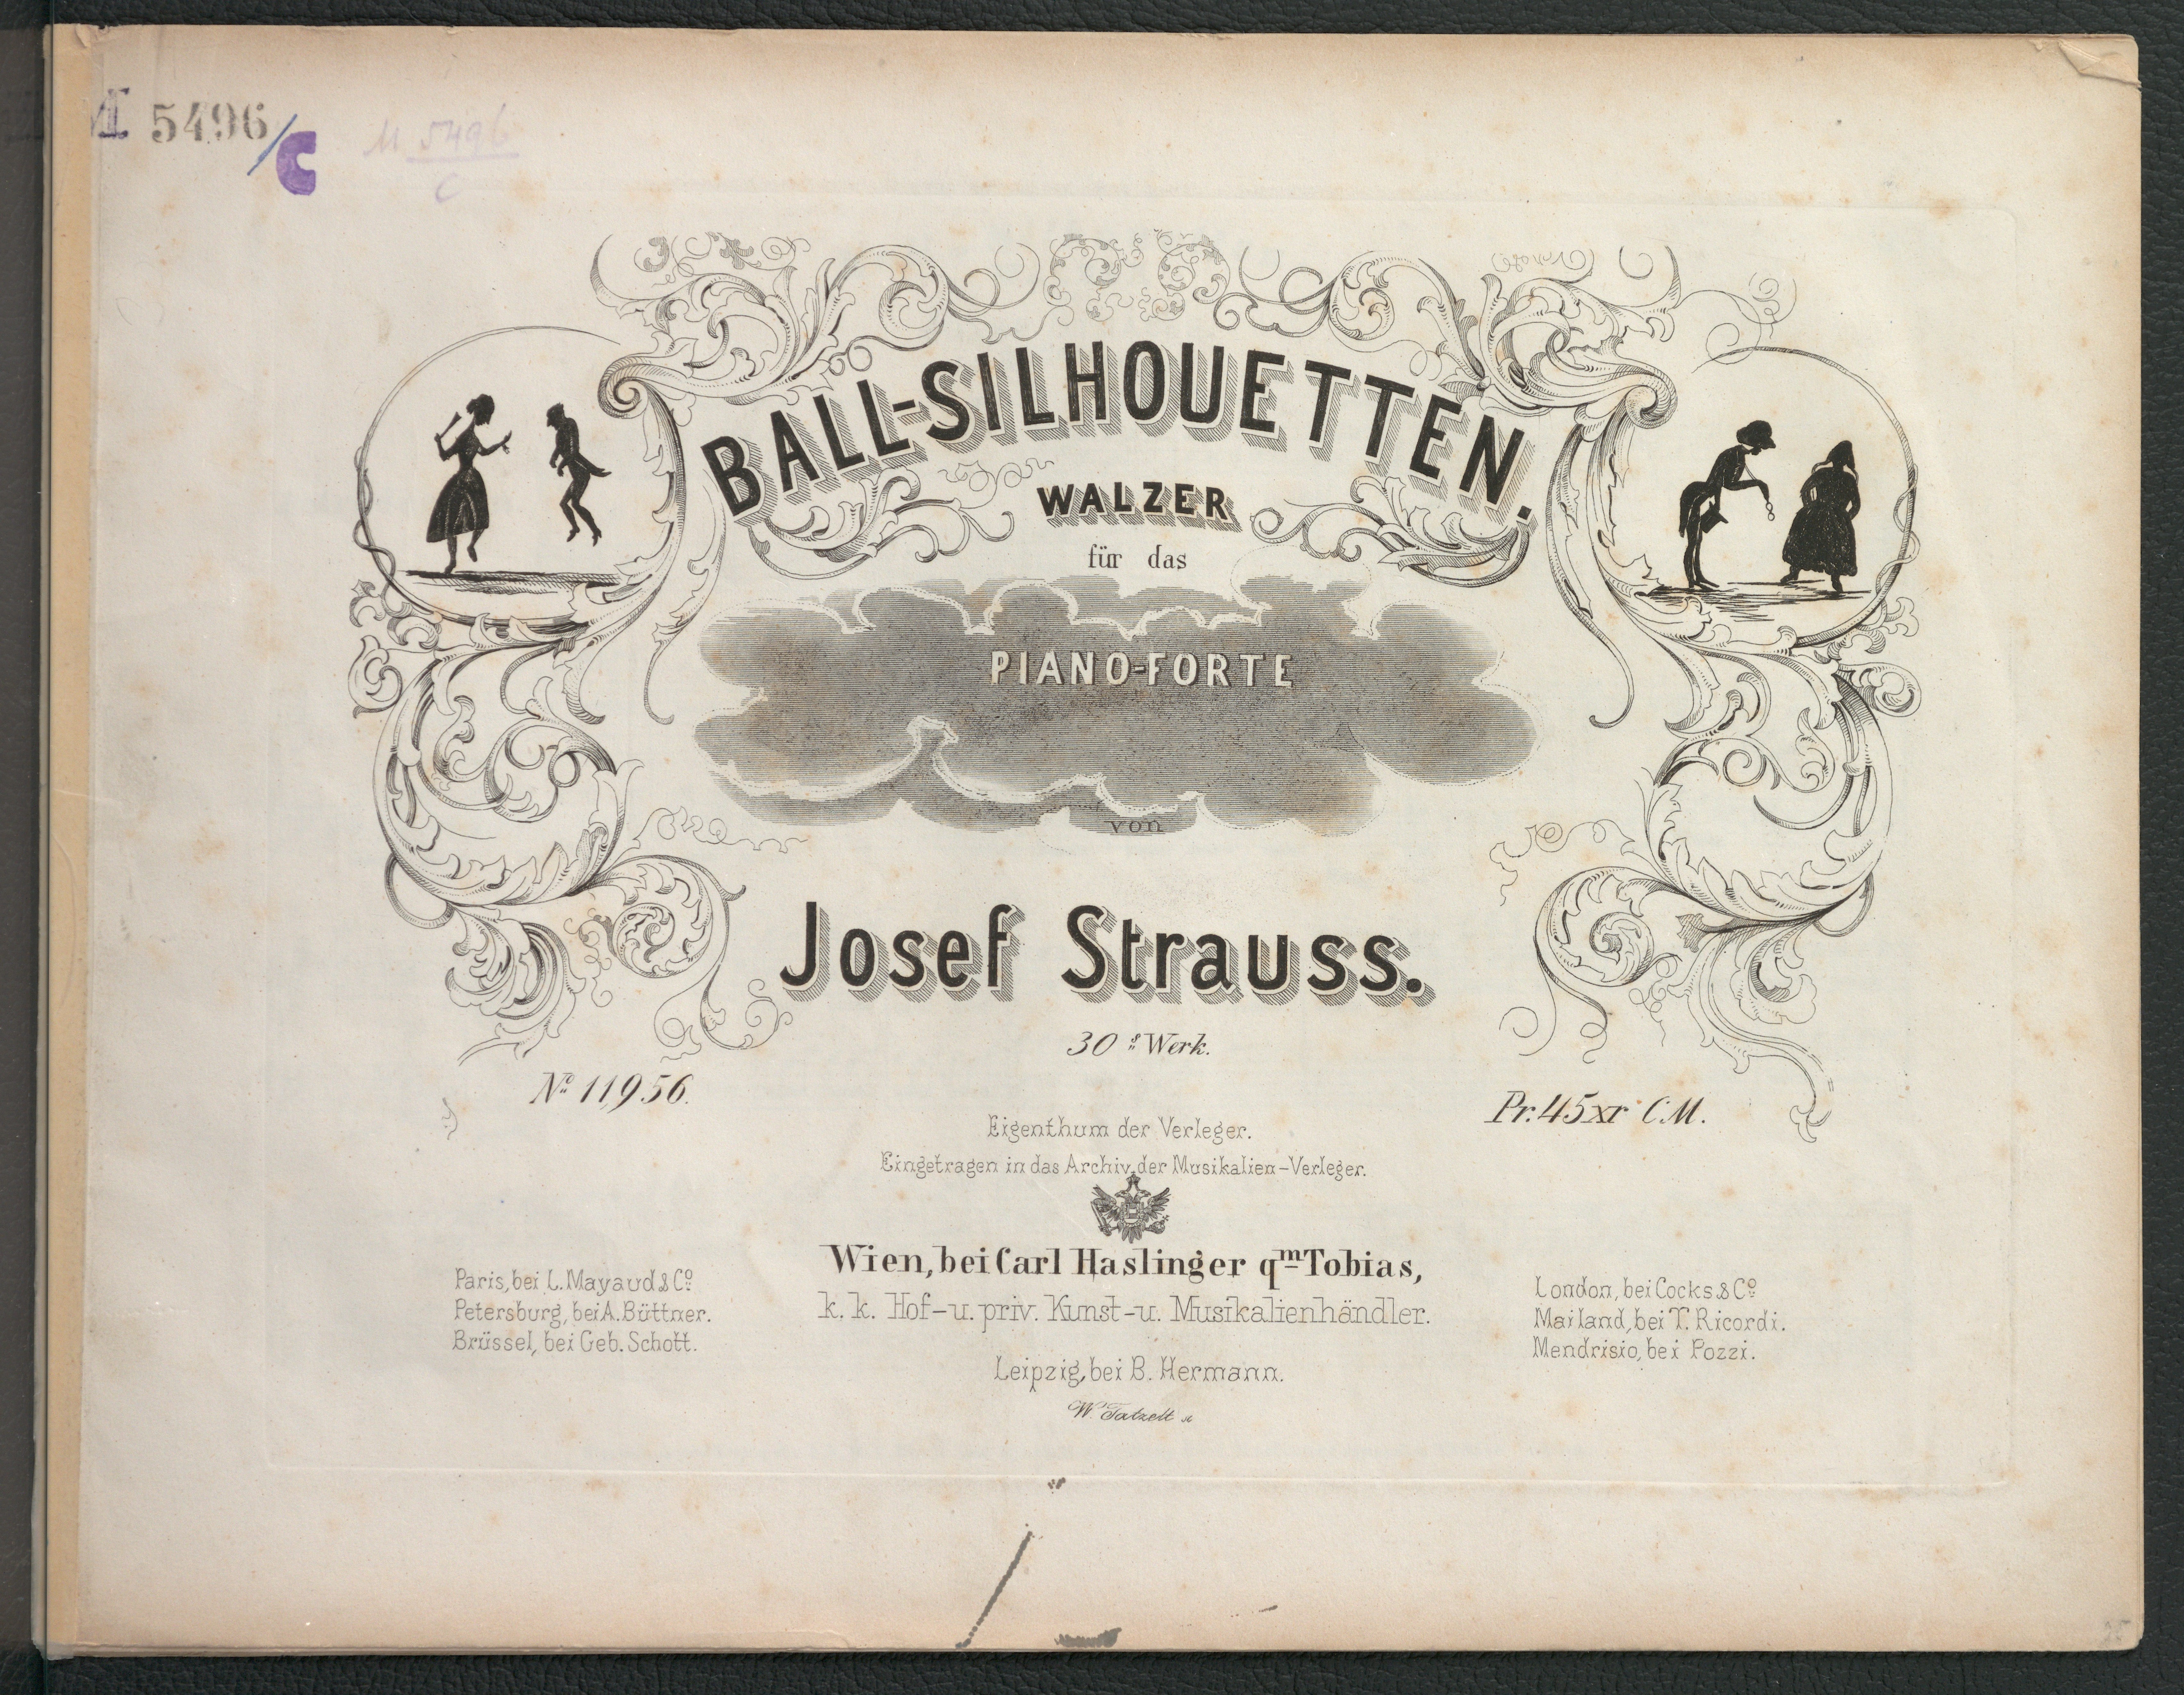 M 5496/C
M 5496
C
BALL-SILHOUETTEN.
WALZER
für das
PIANO-FORTE
von
Josef Strauss.
30s Werk.
No 11,956.
Pr. 45 xr C.M.
Eigenthum der Verleger.
Eingetragen in das Archiv der Musikalien-Verleger.
Wien, bei Carl Haslinger qm Tobias,
k. k. Hof- u. priv. Kunst- u. Musikalienhändler.
Paris, bei L. Mayaud & Co
Petersburg, bei A. Büttner.
Brüssel, bei Geb. Schott.
London, bei Cocks & Co
Mailand, bei T. Ricordi.
Mendrisio, bei Pozzi.
Leipzig, bei B. Hermann.
W. Tatzelt sc